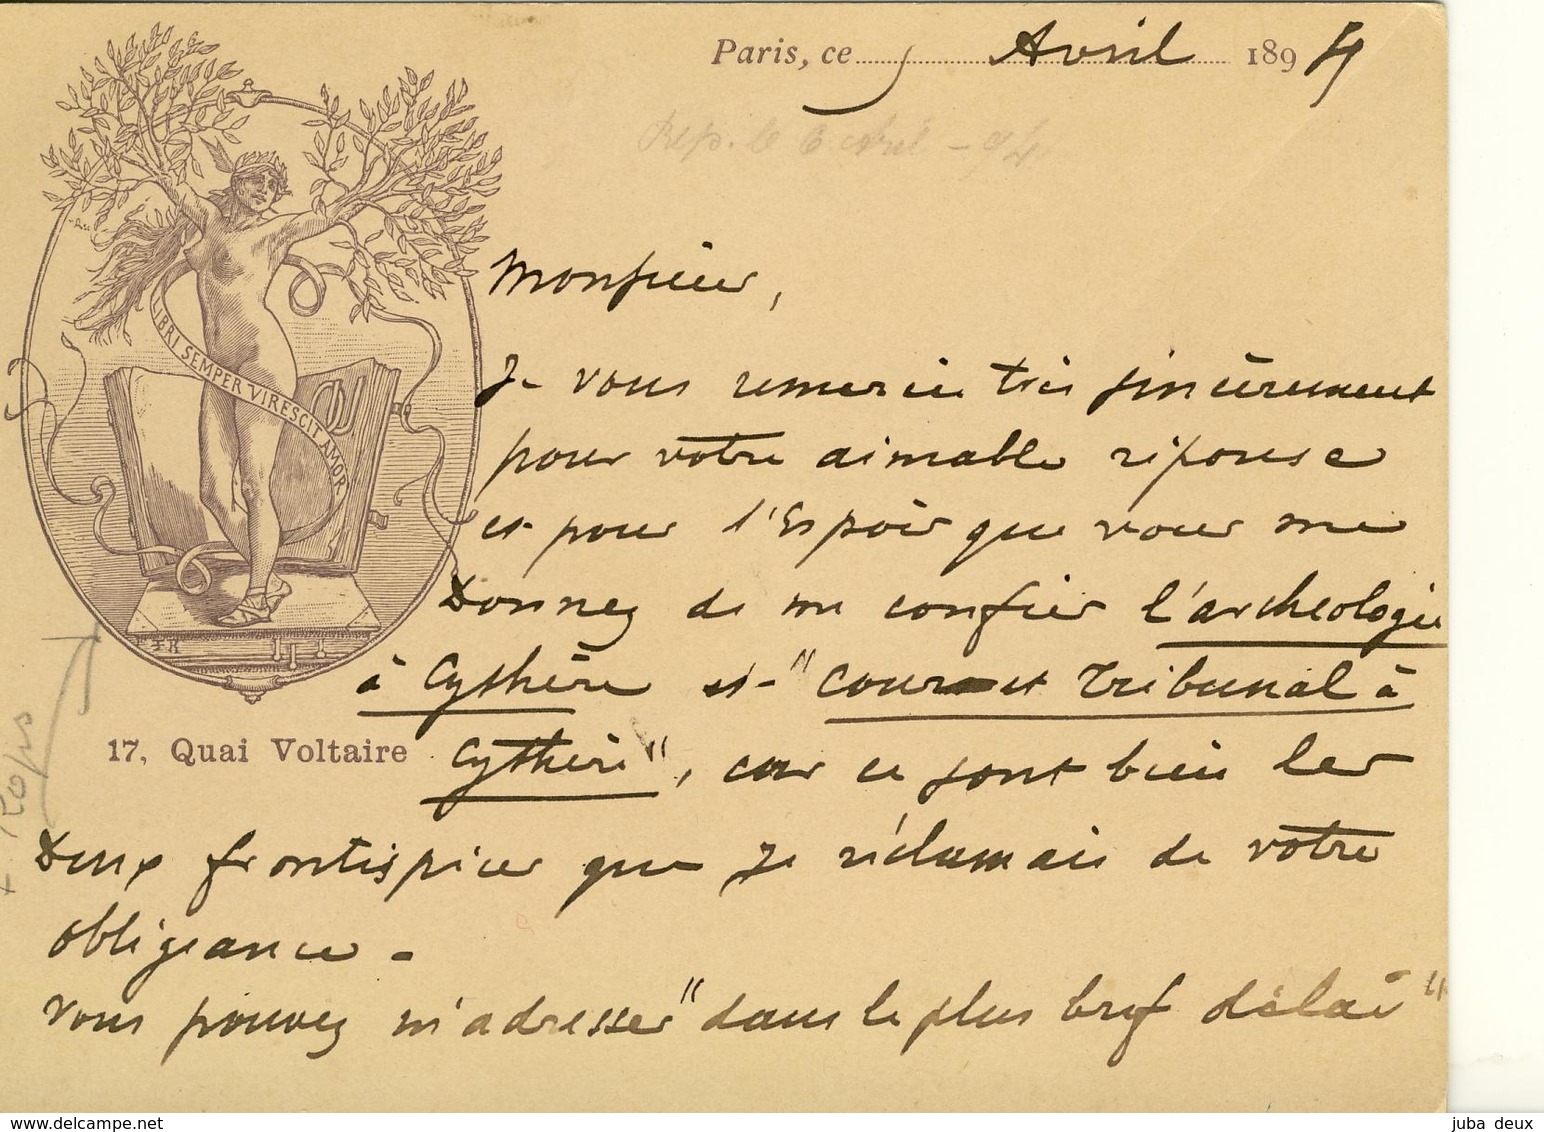 Paris, ce 5 Avril 1894
Rep. le 6 Avril - 94
Monsieur,
LIBRI SEMPER VIRESCIT AMOR
Je vous remercie très sincèrement
pour votre aimable réponse
et pour l'Espoir que vous me
Donnez de me confier l'archeologie
à Cythère et "Cour et Tribunal à
17, Quai Voltaire
Cythère", car ce sont bien les
Rops
Deux frontispices que je réclamais de votre
obligeance -
Vous pouvez m'adresser "dans le plus bref délai"
juba deux